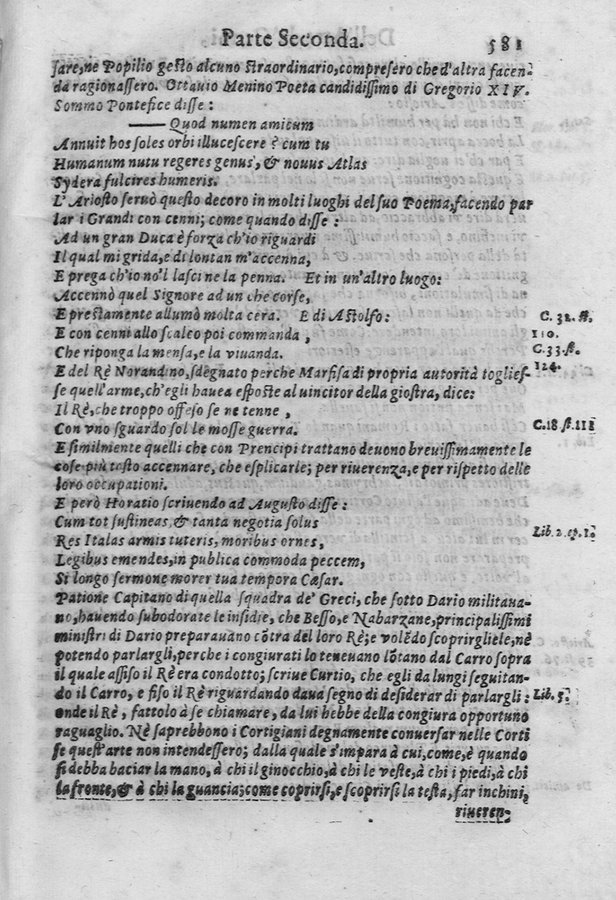 Parte Seconda. 581
ſare, ne Popilio geſto alcuno ſtraordinario, compreſero che d'altra facen-
da ragionaſſero. Ottauio Menino Poeta candidiſſimo di Gregorio XIV.
Sommo Pontefice diſſe:
—— Quod numen amicum
Annuit hos ſoles orbi illuceſcere? cum tu
Humanum nutu regeres genus, & nouus Atlas
Sydera fulcires humeris.
L'Arioſto ſeruò queſto decoro in molti luoghi del ſuo Poema, facendo par
lar i Grandi con cenni; come quando diſſe:
Ad un gran Duca è forza ch'io riguardi
Il qual mi grida, e di lontan m'accenna,
E prega ch'io no'l laſci ne la penna. Et in un'altro luogo:
Accennò quel Signore ad un che corſe,
E preſtamente allumò molta cera. E di Aſtolfo:
C. 32. ſt.
E con cenni allo ſcalco poi commanda,
110.
Che riponga la menſa, e la viuanda.
C. 33. ſt.
E del Rè Norandino, ſdegnato perche Marfiſa di propria autorità toglieſ-
124.
ſe quell'arme, ch'egli hauea eſpoſte al uincitor della gioſtra, dice:
Il Rè, che troppo offeſo ſe ne tenne,
Con vno ſguardo ſol le moſſe guerra.
C. 18. ſt. 111
E ſimilmente quelli che con Prencipi trattano deuono breuiſſimamente le
coſe più toſto accennare, che eſplicarle; per riuerenza, e per riſpetto delle
loro occupationi.
E però Horatio ſcriuendo ad Auguſto diſſe:
Cum tot ſuſtineas, & tanta negotia ſolus
Res Italas armis tuteris, moribus ornes,
Lib. 2. ep. 1.
Legibus emendes, in publica commoda peccem,
Si longo ſermone morer tua tempora Cæſar.
Patione Capitano di quella ſquadra de' Greci, che ſotto Dario militaua-
no, hauendo ſubodorate le inſidie, che Beſſo, e Nabarzane, principaliſſimi
miniſtri di Dario preparauano cõtra del loro Rè; e volẽdo ſcoprirgliele, nè
potendo parlargli, perche i congiurati lo teneuano lõtano dal Carro ſopra
il quale aſſiſo il Rè era condotto; ſcriue Curtio, che egli da lungi ſeguitan-
do il Carro, e fiſo il Rè riguardando daua ſegno di deſiderar di parlargli:
Lib. 5.
onde il Rè, fattolo à ſe chiamare, da lui hebbe della congiura opportuno
raguaglio. Nè ſaprebbono i Cortigiani degnamente conuerſar nelle Corti
ſe queſt'arte non intendeſſero; dalla quale s'impara à cui, come, è quando
ſi debba baciar la mano, à chi il ginocchio, à chi le veſte, à chi i piedi, à chi
la fronte, & à chi la guancia; come coprirſi, e ſcoprirſi la teſta, far inchini,
riueren-